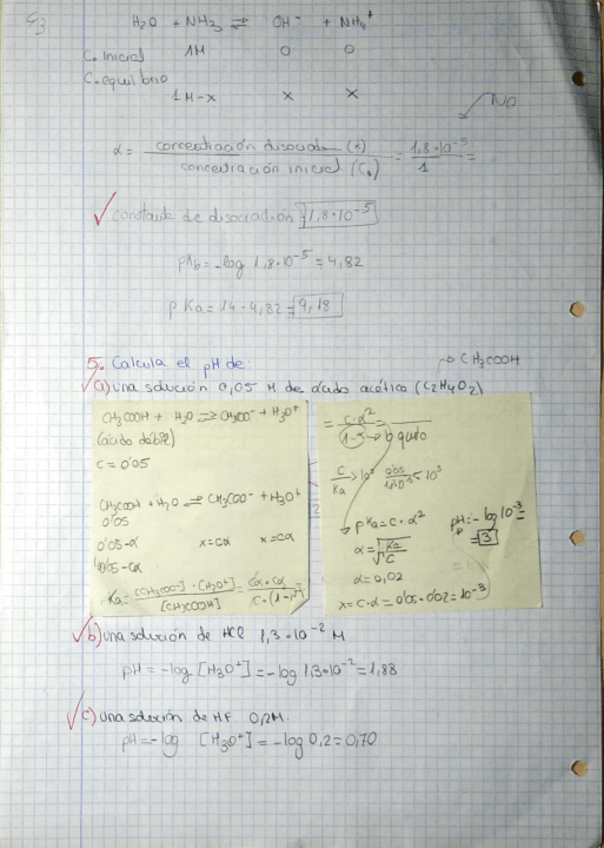 H2O + NH3 ⇌ OH⁻ + NH4⁺
C. Inicial 1M 0 0
C. equilibrio
1M-x x x
NO
α = concentración disociada (x) / concentración inicial (C₀) = 1,8·10⁻⁵ / 1 =
constante de disociación 1,8·10⁻⁵
pKb = -log 1,8·10⁻⁵ = 4,82
pKa = 14-4,82 = 9,18
5. Calcula el pH de:
CH3COOH
a) una solución 0,05 M de ácido acético (C2H4O2)
CH3COOH + H2O ⇌ CH3COO⁻ + H3O⁺
(ácido débil)
c = 0'05
CH3COOH + H2O ⇌ CH3COO⁻ + H3O⁺
0'05
0'05-α x=cα x=cα
0'05-cα
Ka = [CH3COO⁻]·[H3O⁺] / [CH3COOH] = cα·cα / c·(1-α) =
= c·α² / 1-α =
→ lo quito
c/Ka > 10³
pKa = c·α²
α = √Ka/c
α = 0,02
x = c·α = 0'05·0'02 = 10⁻³
pH = -log 10⁻³ =
= 3
b) una solución de HCl 1,3·10⁻² M
pH = -log [H3O⁺] = -log 1,3·10⁻² = 1,88
c) una solución de HF 0,2M.
pH = -log [H3O⁺] = -log 0,2 = 0,70